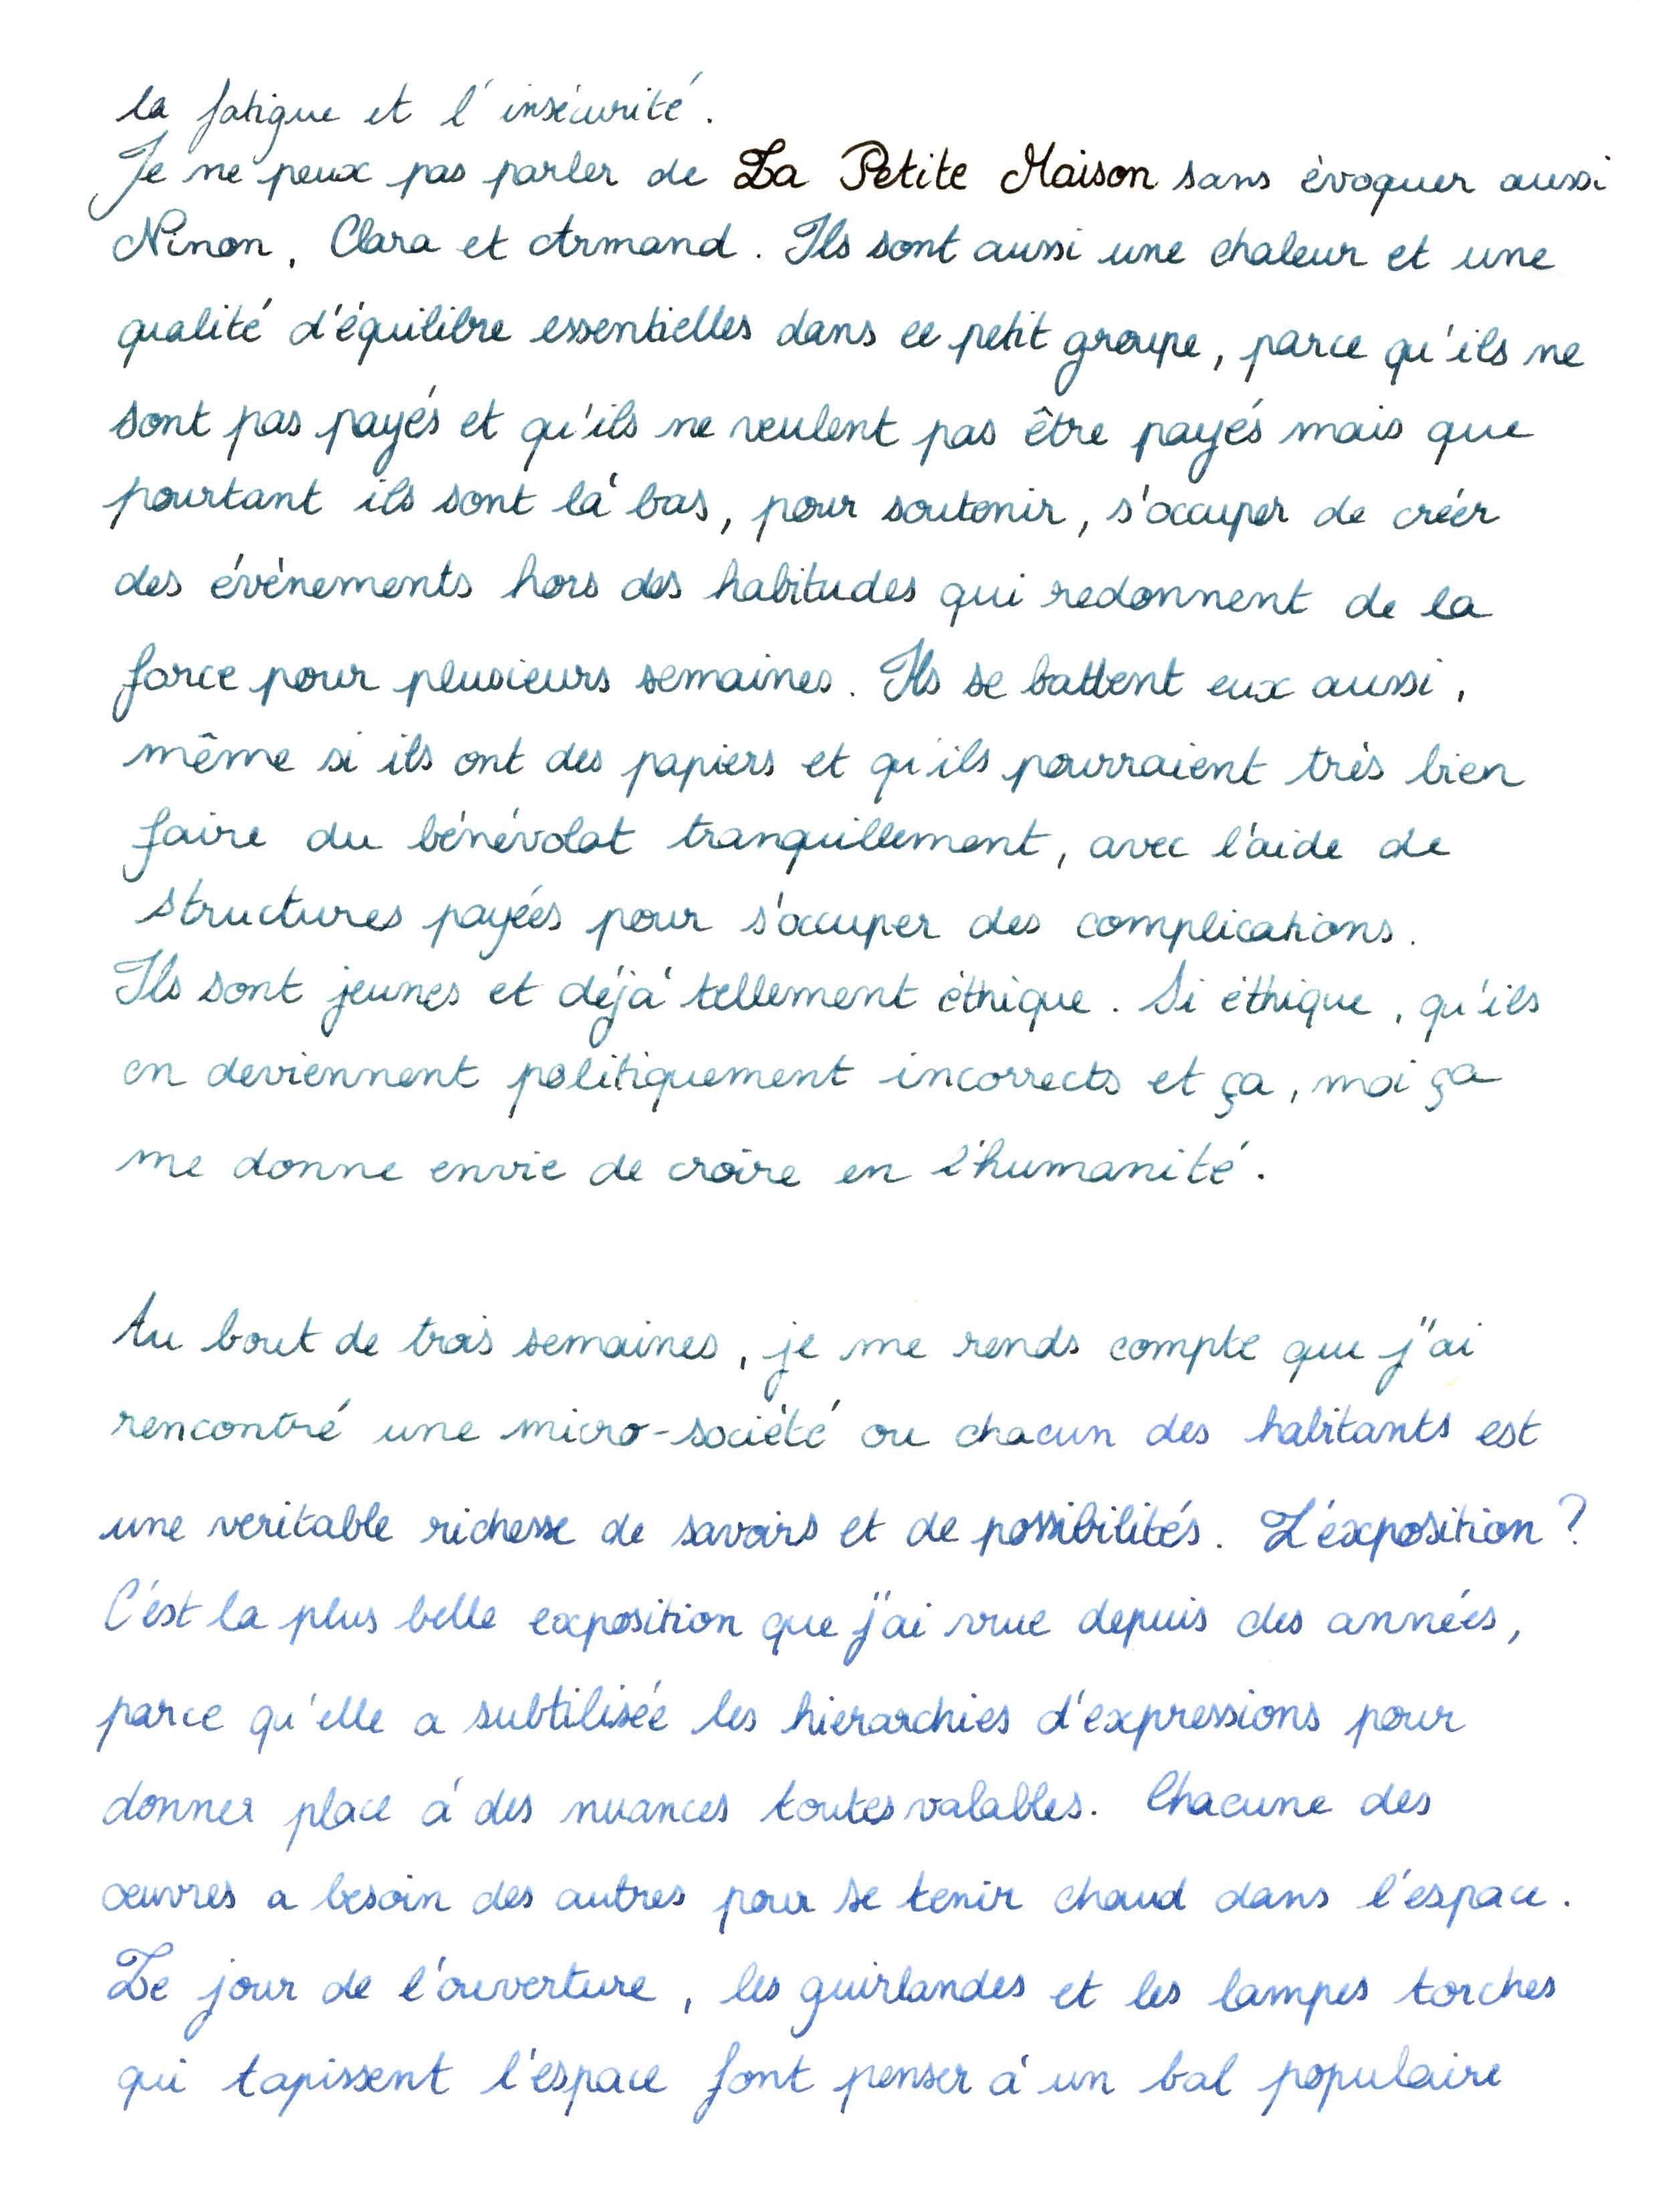 la fatigue et l'insécurité.
Je ne peux pas parler de La Petite Maison sans évoquer aussi
Ninon, Clara et Armand. Ils sont aussi une chaleur et une
qualité d'équilibre essentielles dans ce petit groupe, parce qu'ils ne
sont pas payés et qu'ils ne veulent pas être payés mais que
pourtant ils sont là bas, pour soutenir, s'occuper de créer
des évènements hors des habitudes qui redonnent de la
force pour plusieurs semaines. Ils se battent eux aussi,
même si ils ont des papiers et qu'ils pourraient très bien
faire du bénévolat tranquillement, avec l'aide de
structures payées pour s'occuper des complications.
Ils sont jeunes et déjà tellement éthique. Si éthique, qu'ils
en deviennent politiquement incorrects et ça, moi ça
me donne envie de croire en l'humanité.
Au bout de trois semaines, je me rends compte que j'ai
rencontré une micro-société ou chacun des habitants est
une veritable richesse de savoirs et de possibilités. L'éxposition ?
C'est la plus belle exposition que j'ai vue depuis des années,
parce qu'elle a subtilisée les hierarchies d'expressions pour
donner place à des nuances toutes valables. Chacune des
œuvres a besoin des autres pour se tenir chaud dans l'espace.
Le jour de l'ouverture, les guirlandes et les lampes torches
qui tapissent l'espace font penser à un bal populaire